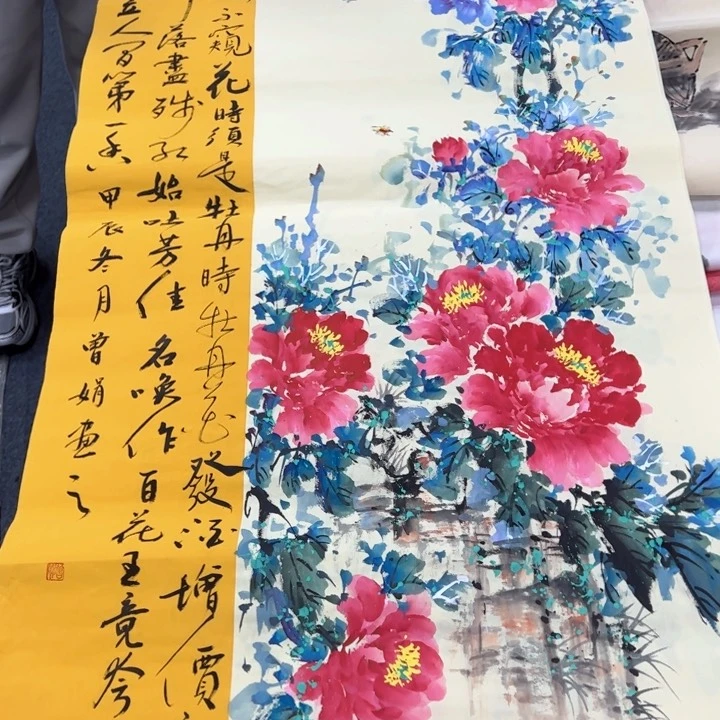 不窺花時須是牡丹時牡丹花發酒增價
落盡殘紅始吐芳佳名喚作百花王竟夸
立人間第一香甲辰冬月曾娟畫之